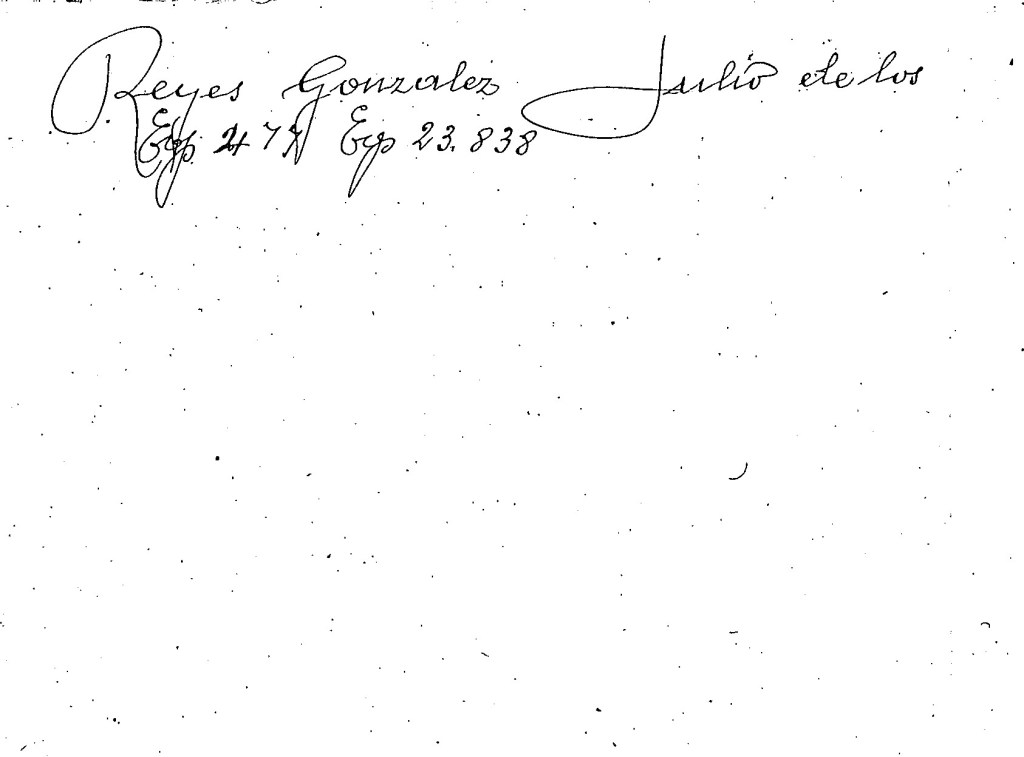 Reyes Gonzalez Julio de los
Exp 477 Exp 23.838